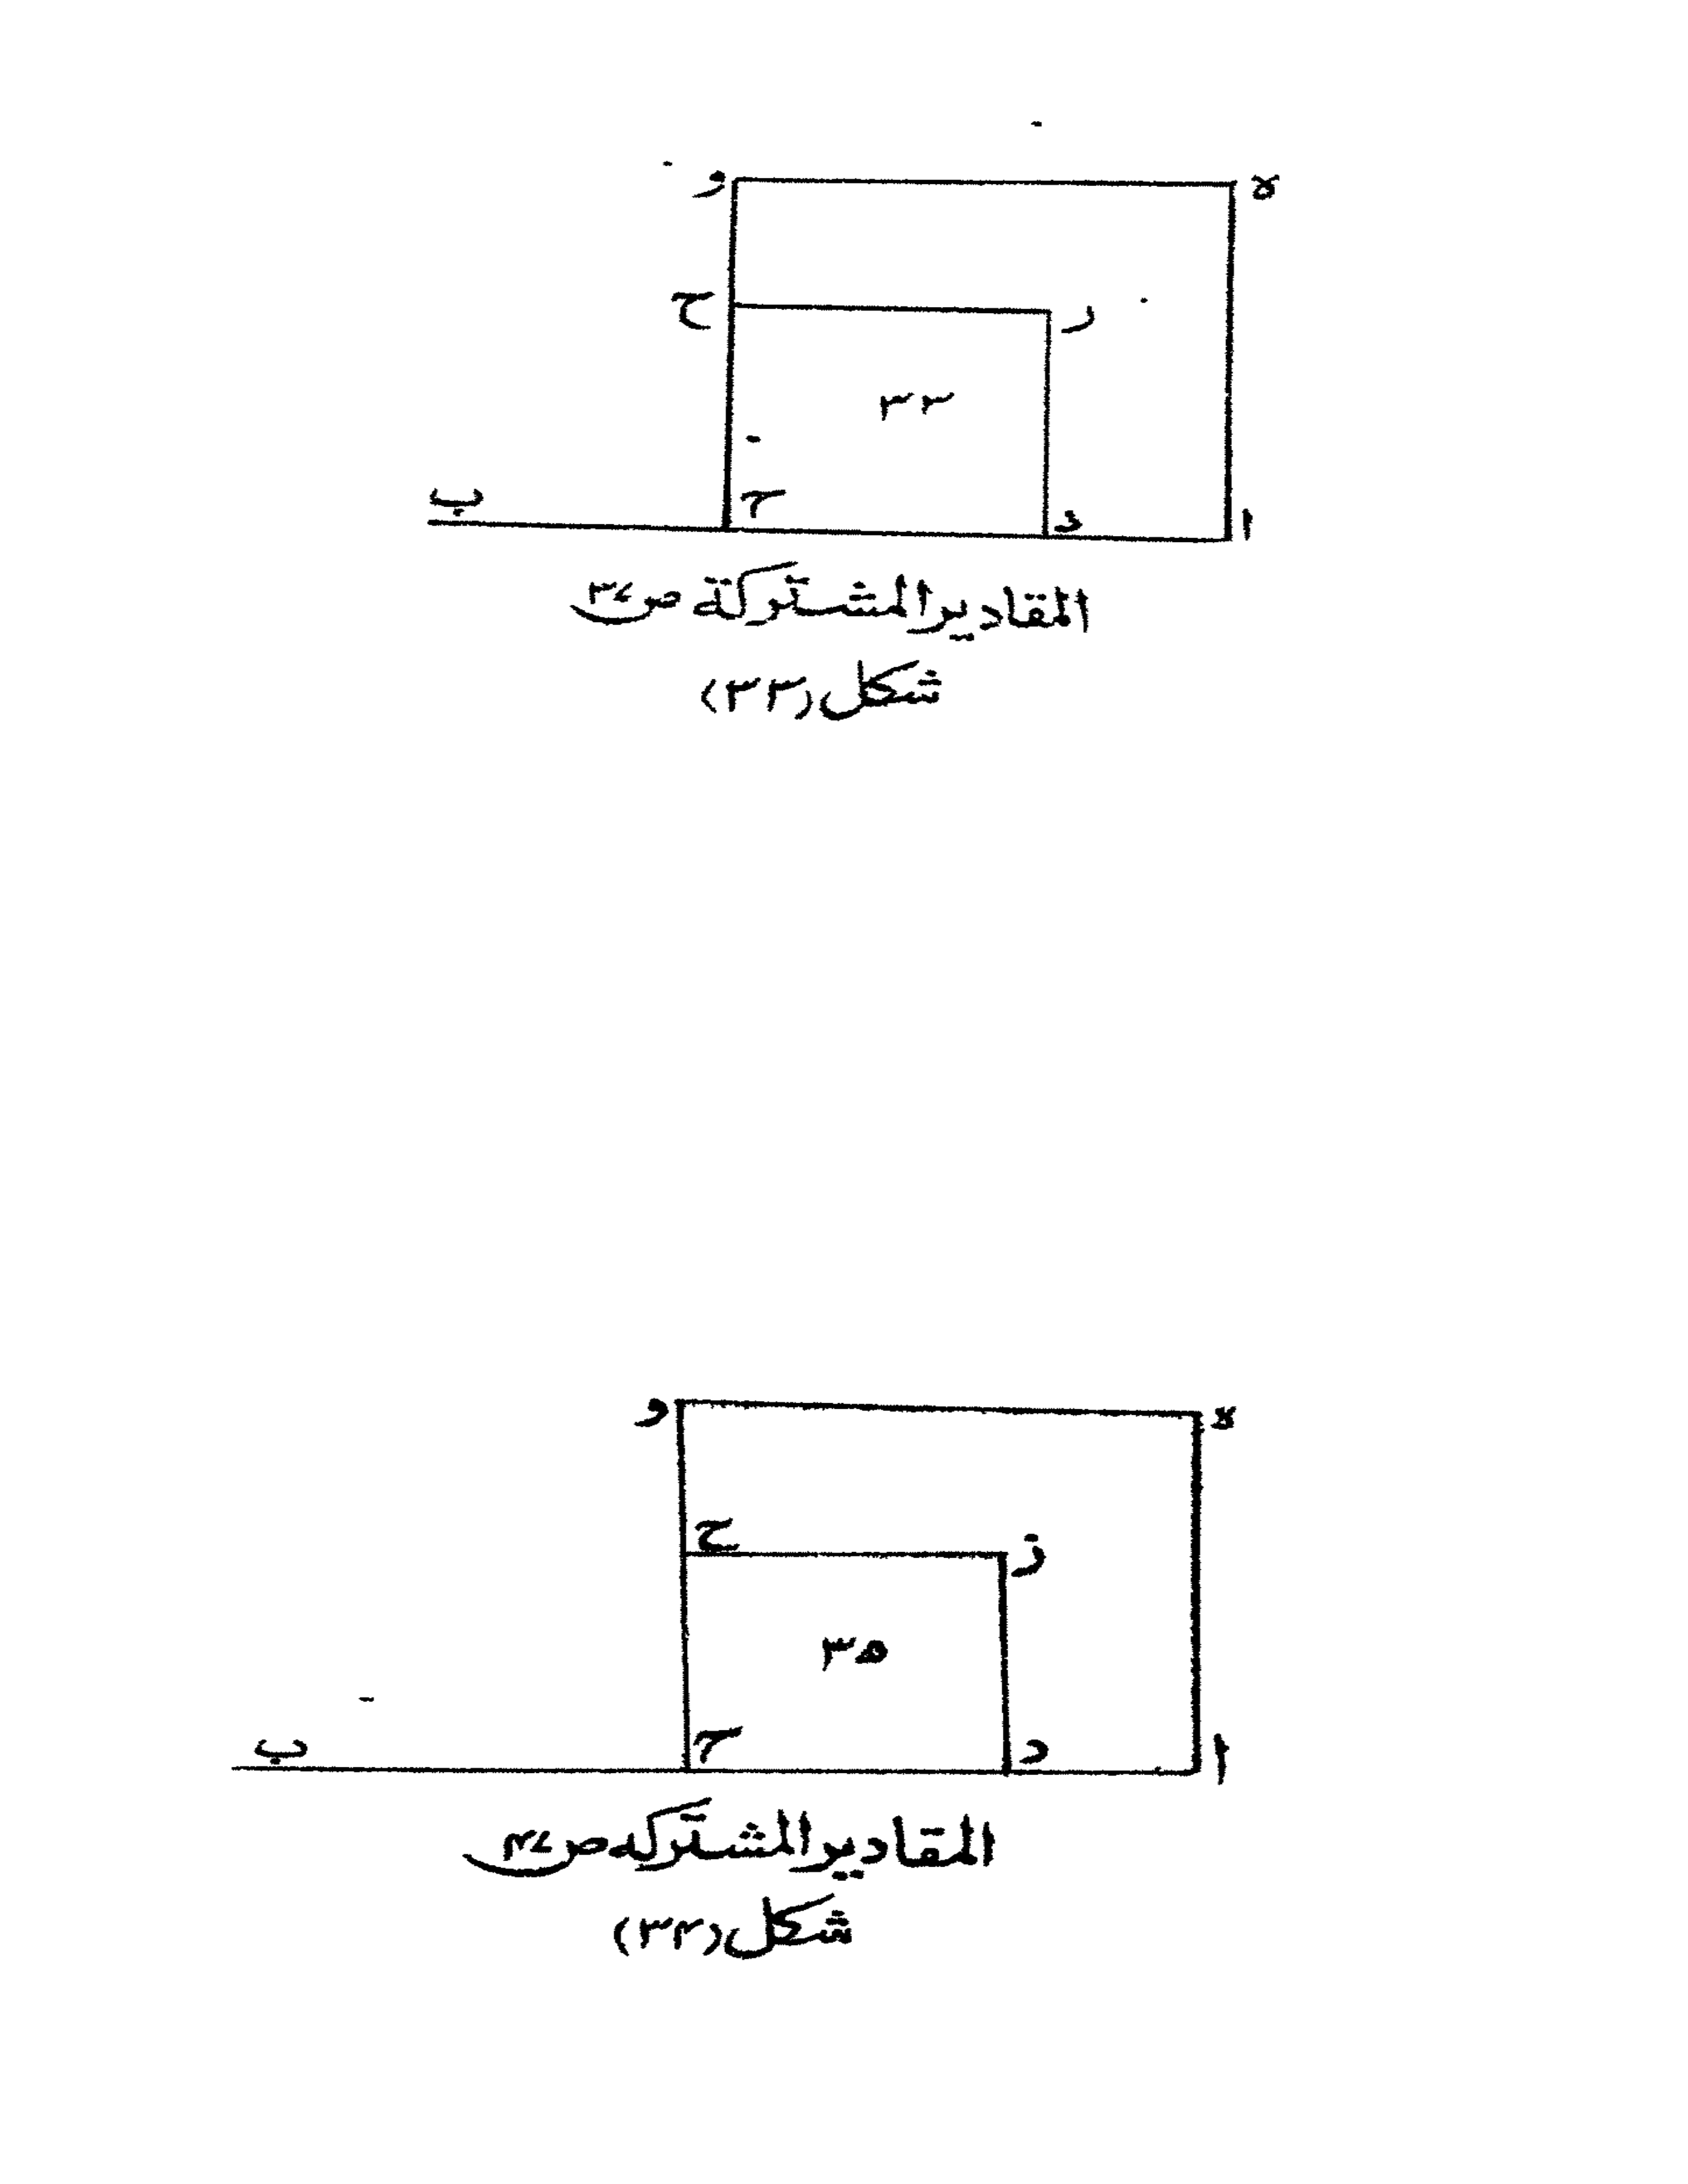 و ه
ح ر
٣٣
ب حـ د ا
المقادير المشتركة ص٣
شكل (٣٣)
و ه
ح ز
٣٥
ب حـ د ا
المقادير المشتركه ص٤
شكل (٣٤)